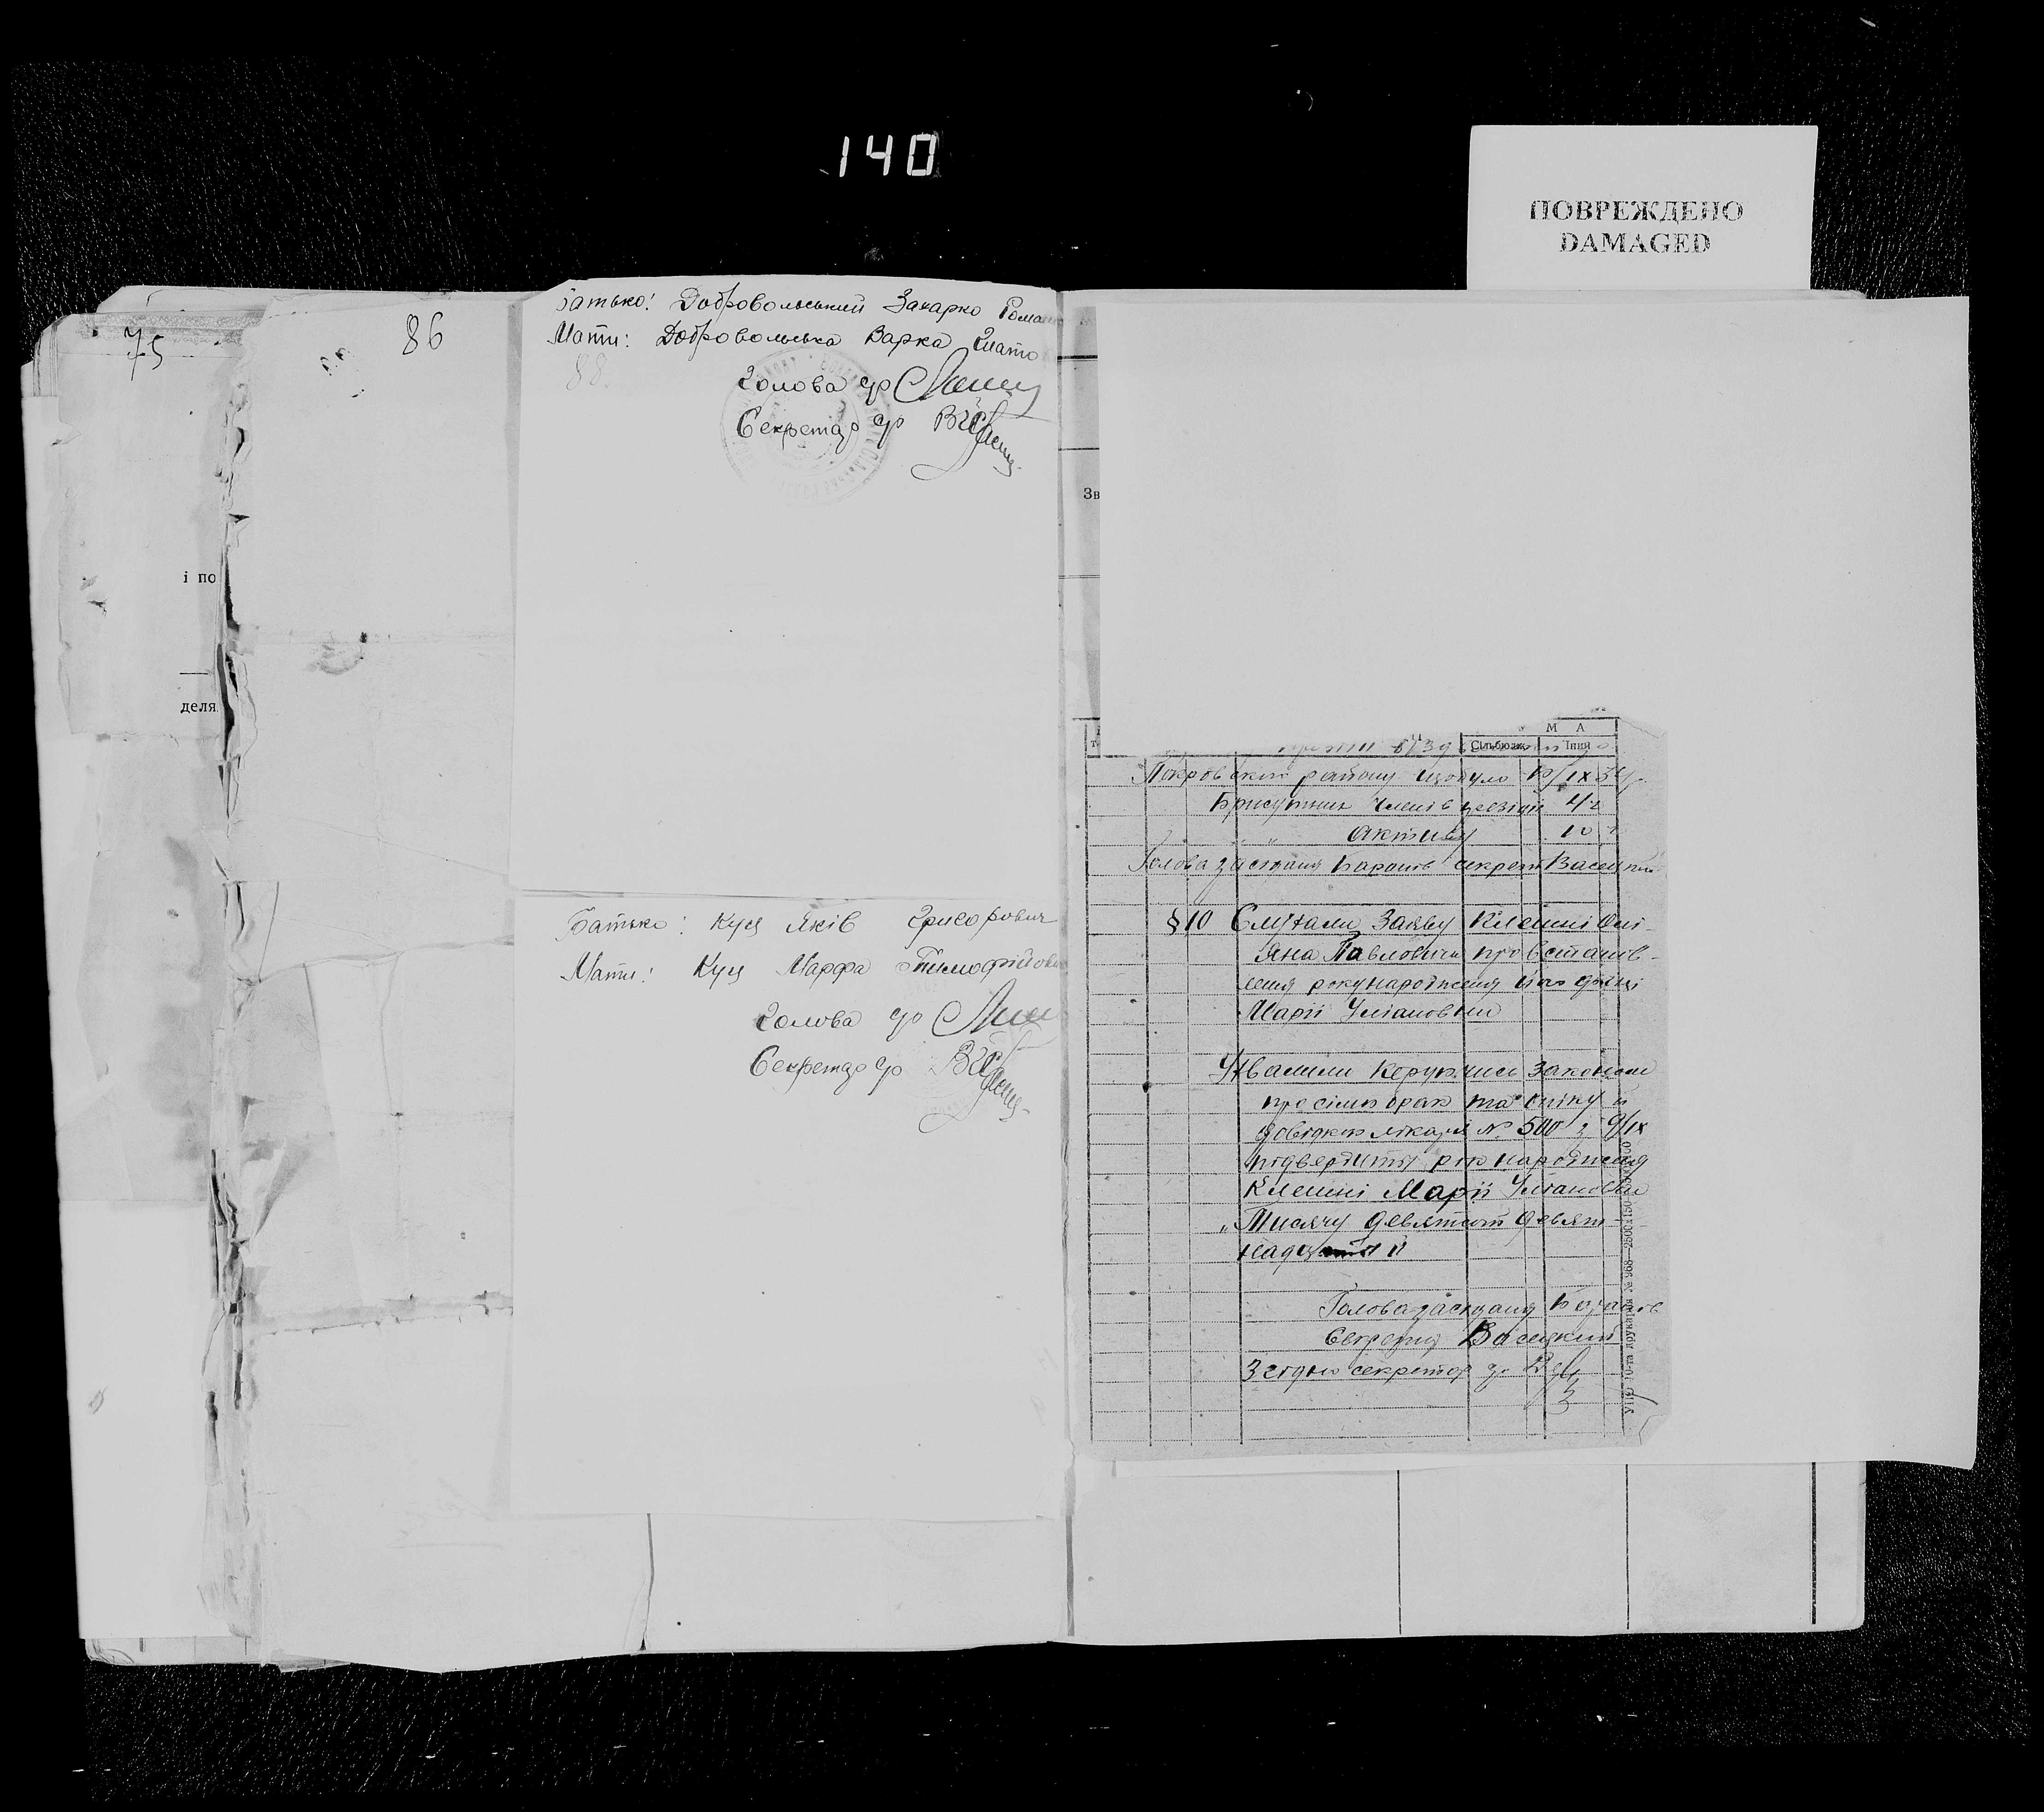 140
ПОВРЕЖДЕНО
DAMAGED
75
86
88
і по
деля
Батько: Добровольський Захарко Рома
Мати: Добровольська Варка Гнато
Голова с/р
Секретар с/р
Батько: Куц Яків Григорович
Мати: Куц Марфа Тимофійовн
Голова с/р
Секретар с/р
Зв
М А
Сільбюдж
Покровського району
Присутних членів президії 4
" Активу 10
Голова засідання Баранів секрет Васецький
§10 Слухали Заяву Клешні Улі-
яна Павловича про встанов-
лення року народження його дочці
Марії Уліановни
Ухвалили Керуючись законом
про сімю брак та опіку й
довідкою лікаря № 500 з 9/ІХ
підвердити рік народження
Клешні Марії Уліановни
„Тисячу девятсот девят-
надцятий
Голова засідання Баранів
Секретар Васецький
Згідно секретар с/р
10-та друкарня № 968—2500х150